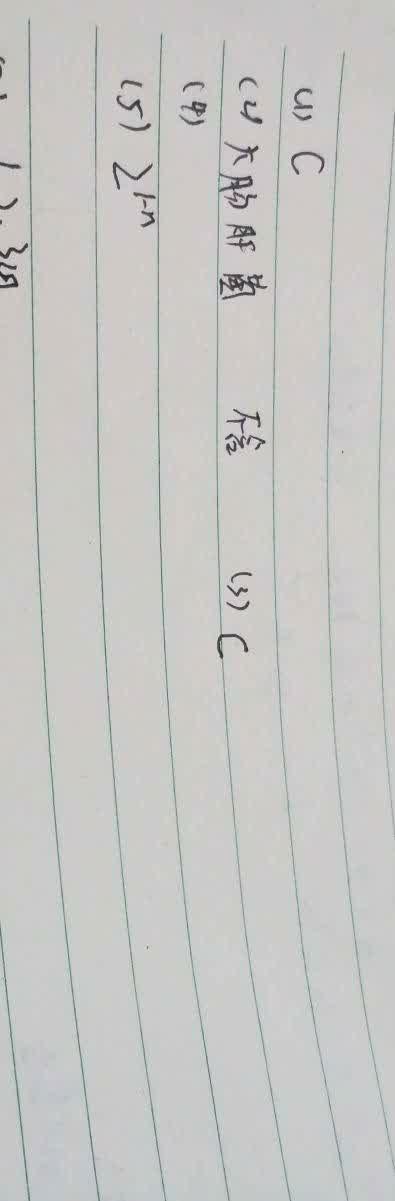 (1) C
(2) 大肠杆菌 不含 (3) C
(4)
(5) 2^{1-n}